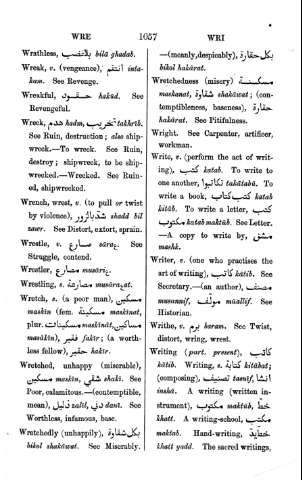 WRE 1057 WRI
Wrathless, بلاغضب bilâ ghadab.
Wreak, v. (vengeance), انتقم inta-
kam. See Revenge.
Wreakful, حقود hakûd. See
Revengeful.
Wreck, هدم hadm, تخريب takhrîb;
See Ruin, destruction; also ship-
wreck.—To wreck. See Ruin,
destroy; shipwreck, to be ship-
wrecked.—Wrecked. See Ruin-
ed, shipwrecked.
Wrench, wrest, v. (to pull or twist
by violence), shadd bil
See Distort, extort, sprain.
Wrestle, v. صارع See
Struggle, contend.
Wrestler, مصارع
Wrestling, s. مصارعة
Wretch, s. (a poor man), مسكين
maskîn (fem. مسكينة maskînat,
plur. مسكينات maskînât, مساكين
masâkîn), فقير fakîr; (a worth-
less fellow), حقير hakîr.
Wretched, unhappy (miserable),
مسكين maskîn, شقي shakî. See
Poor, calamitous.—(contemptible,
mean), ذليل zalîl, دني danî. See
Worthless, infamous, base.
Wretchedly (unhappily), بكل شقاوة
bikol shakâwat. See Miserably.
—(meanly, despicably), بكل حقارة
bikol hakârat.
Wretchedness (misery) مسكنة
maskanat, شقاوة shakâwat; (con-
temptibleness, baseness), حقارة
hakârat. See Pitifulness.
Wright. See Carpenter, artificer,
workman.
Write, v. (perform the act of writ-
ing), كتب katab. To write to
one another, تكاتبوا takâtabû. To
write a book, كتب كتاب katab
kitâb. To write a letter, كتب
مكتوب katab maktûb. See Letter.
—A copy to write by, مشق
mashk.
Writer, s. (one who practises the
art of writing), كاتب kâtib. See
Secretary.—(an author), مصنف
musannif, مولف mûallif. See
Historian.
Writhe, v. برم baram. See Twist,
distort, wring, wrest.
Writing (part. present), كاتب
kâtib. Writing, s. كتابة kitâbat;
(composing), تصنيف tasnîf, انشا
inshâ. A writing (written in-
strument), مكتوب maktûb, خط
khatt. A writing-school, مكتب
maktab. Hand-writing, خط يد
khatt yadd. The sacred writings,